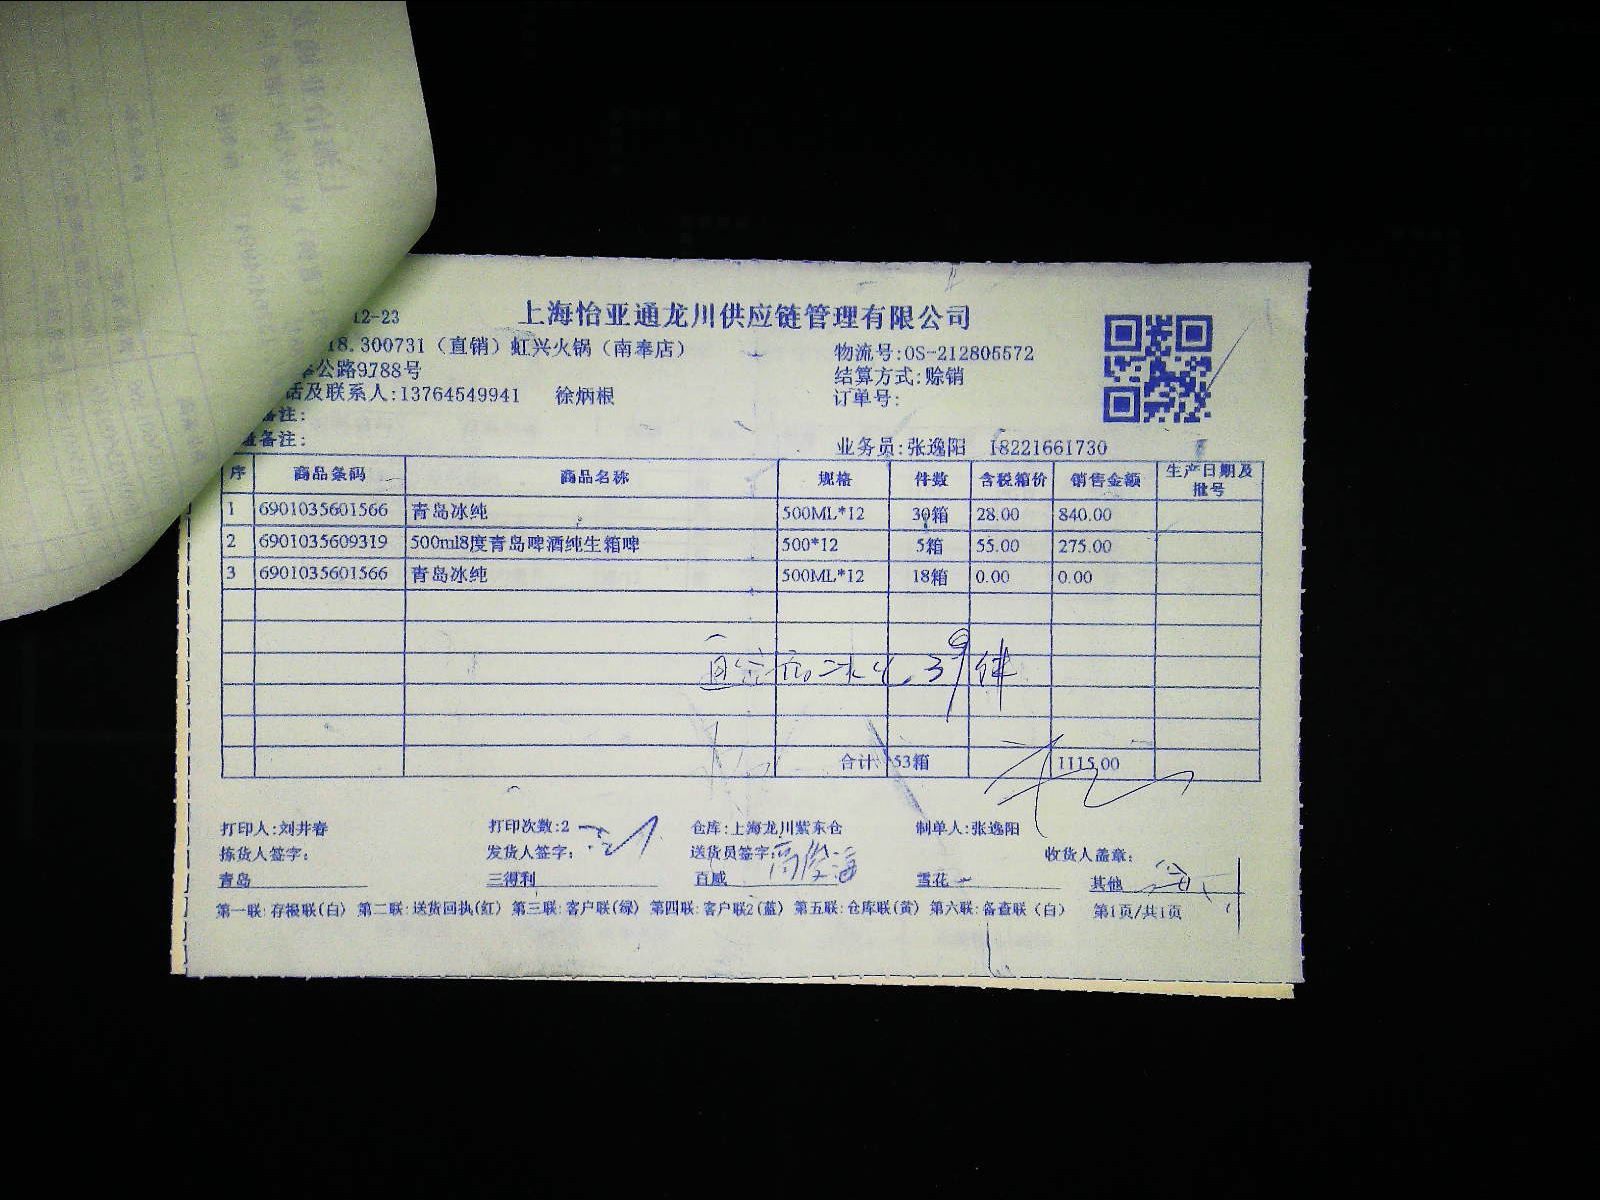 12-23
上海怡亚通龙川供应链管理有限公司
18.300731（直销）虹兴火锅（南奉店）
物流号:OS-212805572
公路9788号
结算方式:赊销
话及联系人:13764549941 徐炳根
订单号:
备注:
备注:
业务员:张逸阳 18221661730
序 商品条码 商品名称 规格 件数 含税箱价 销售金额 生产日期及批号
1 6901035601566 青岛冰纯 500ML*12 30箱 28.00 840.00
2 6901035609319 500ml8度青岛啤酒纯生箱啤 500*12 5箱 55.00 275.00
3 6901035601566 青岛冰纯 500ML*12 18箱 0.00 0.00
39件
合计: 53箱 1115.00
打印人:刘井春 打印次数:2 仓库:上海龙川紫东仓 制单人:张逸阳
拣货人签字: 发货人签字: 送货员签字: 收货人盖章:
青岛 三得利 百威 雪花 其他
第一联:存根联(白) 第二联:送货回执(红) 第三联:客户联(绿) 第四联:客户联2(蓝) 第五联:仓库联(黄) 第六联:备查联（白） 第1页/共1页